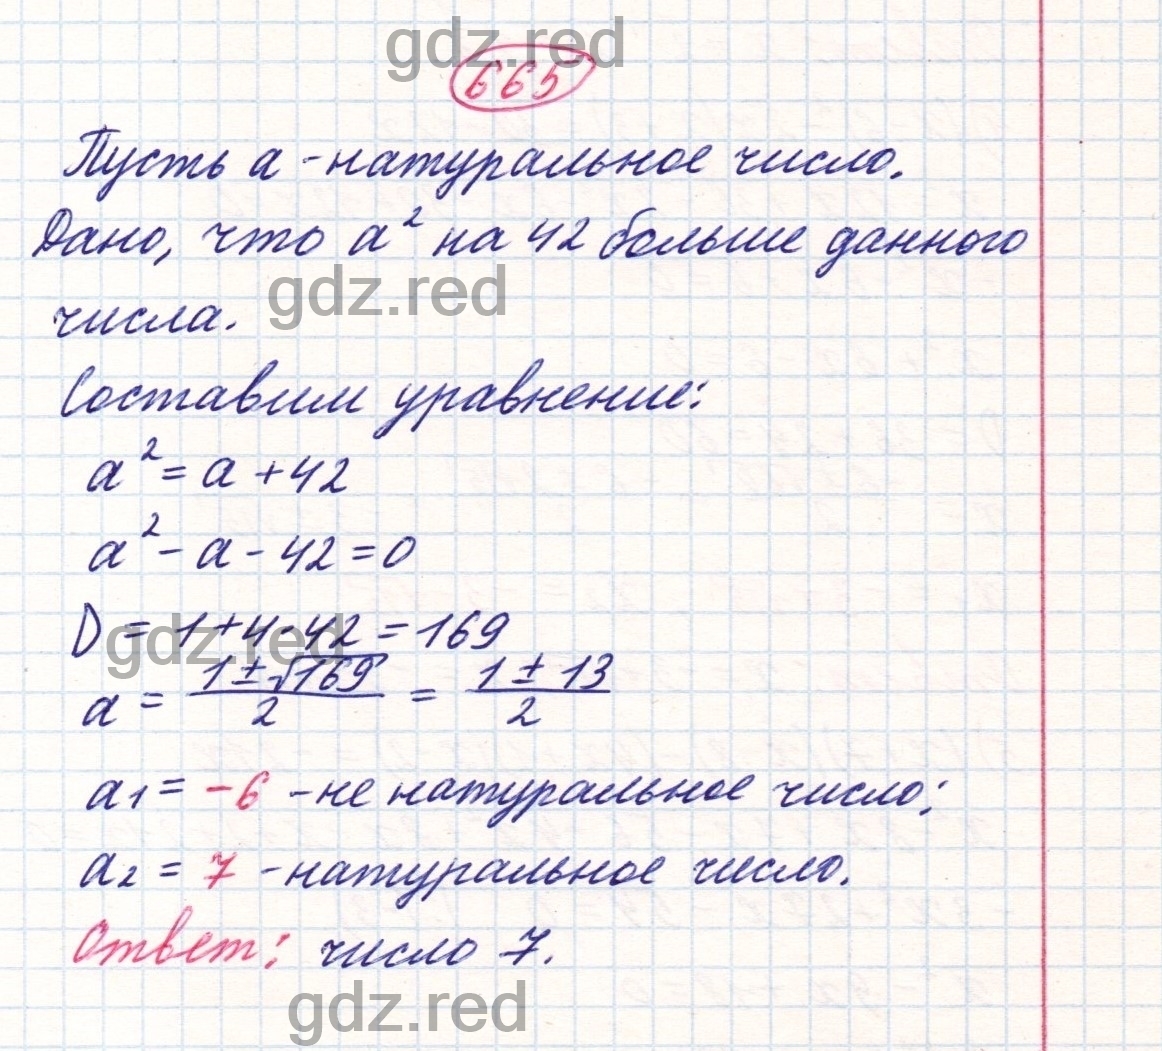 gdz.red
665
Пусть a - натуральное число.
Дано, что a² на 42 больше данного
gdz.red
числа.
Составим уравнение:
a² = a + 42
a² - a - 42 = 0
gdz.red
D = 1 + 4 · 42 = 169
a = (1 ± √169)/2 = (1 ± 13)/2
a₁ = -6 - не натуральное число;
a₂ = 7 - натуральное число.
Ответ: число 7.
gdz.red